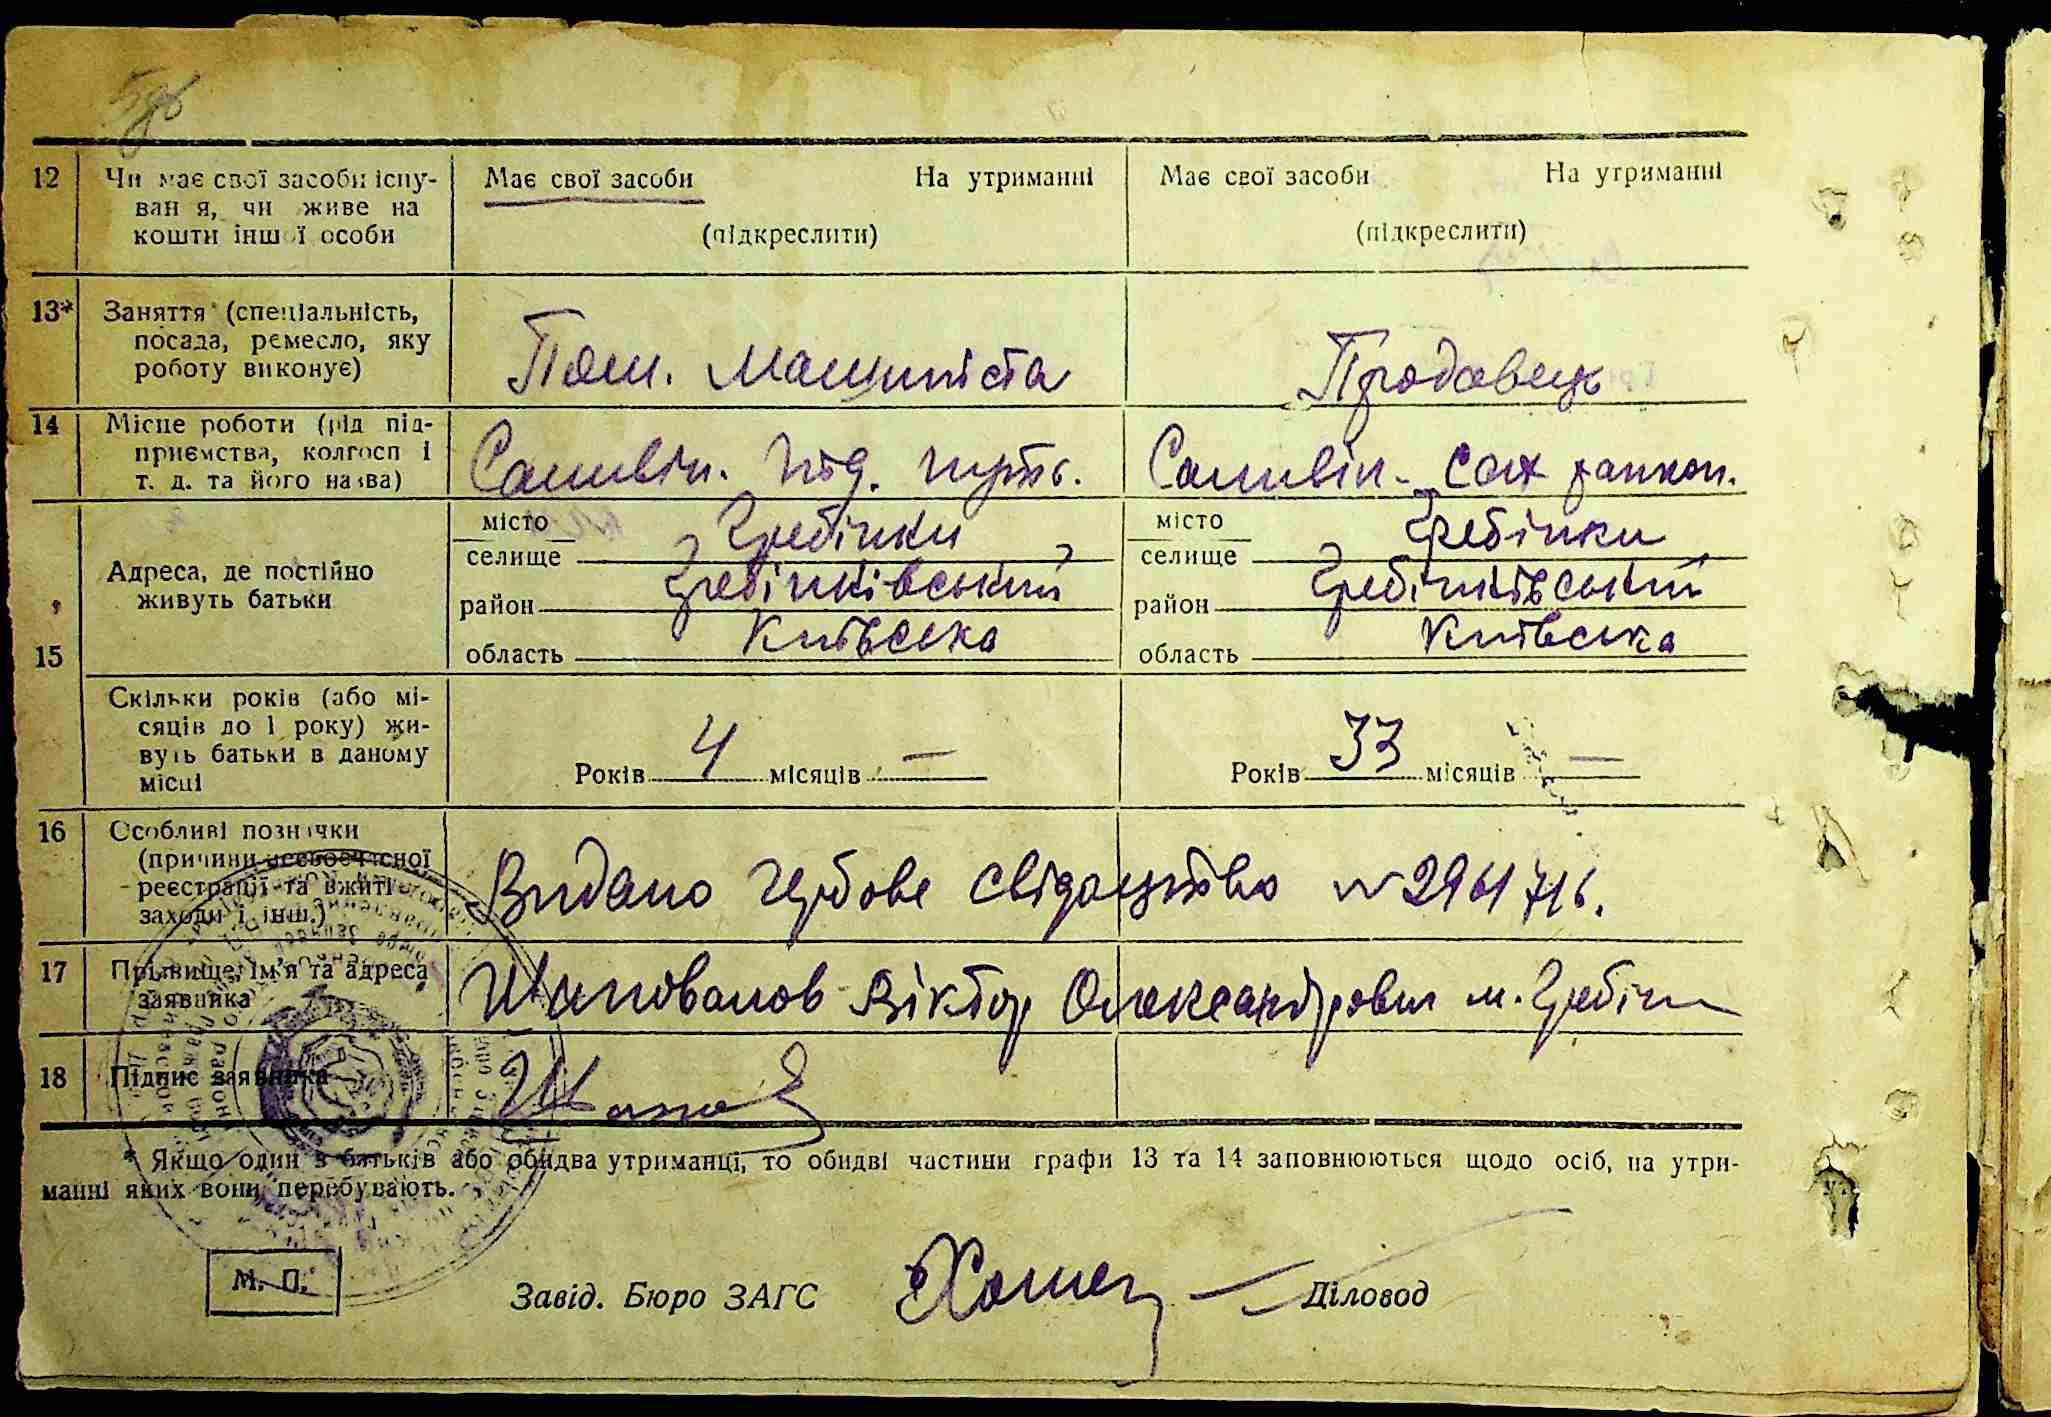 12 Чи має свої засоби існу- Має свої засоби На утриманні Має свої засоби На утриманні
вання, чи живе на
кошти іншої особи (підкреслити) (підкреслити)
13* Заняття (спеціальність,
посада, ремесло, яку
роботу виконує) Пом. Машиніста Продавець
14 Місце роботи (рід під-
приємства, колгосп і
т. д. та його назва) Саливін. під. путь. Саливін. Сах
місто Гребінки місто Гребінки
селище селище
Адреса, де постійно
живуть батьки район Гребінківський район Гребінківський
15 область Київська область Київська
Скільки років (або мі-
сяців до 1 року) жи-
вуть батьки в даному
місці Років 4 місяців — Років 33 місяців —
16 Особливі позначки
(причини несвоєчасної
реєстрації та вжиті
заходи і інш.) Видано гербове свідоцтво № 2961716.
17 Прізвище, ім'я та адреса
заявника Шаповалов Віктор Олександрович м. Гребінки
18 Підпис заявника
* Якщо один з батьків або обидва утриманці, то обидві частини графи 13 та 14 заповнюються щодо осіб, на утри-
манні яких вони перебувають.
М. П. Завід. Бюро ЗАГС Діловод